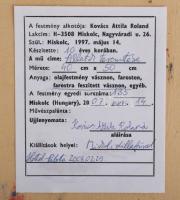 A festmény alkotója: Kovács Attila Roland
Lakcím: H-3508 Miskolc, Nagyváradi u. 26.
Szül.: Miskolc, 1997. május 14.
Készítette: 10 éves korában.
A mű címe: Állatok teremtése
Mérete: 40 cm x 50 cm
Anyaga: olajfestmény vásznon, faroston,
farostra feszített vásznon, egyéb.
A festmény egyedi sorszáma: 135
Miskolc (Hungary), 20
Művészpalánta:
Ujjlenyomata:
Kovács Attila Roland
aláírása
Kiállítások helyei:
2008.02.29.